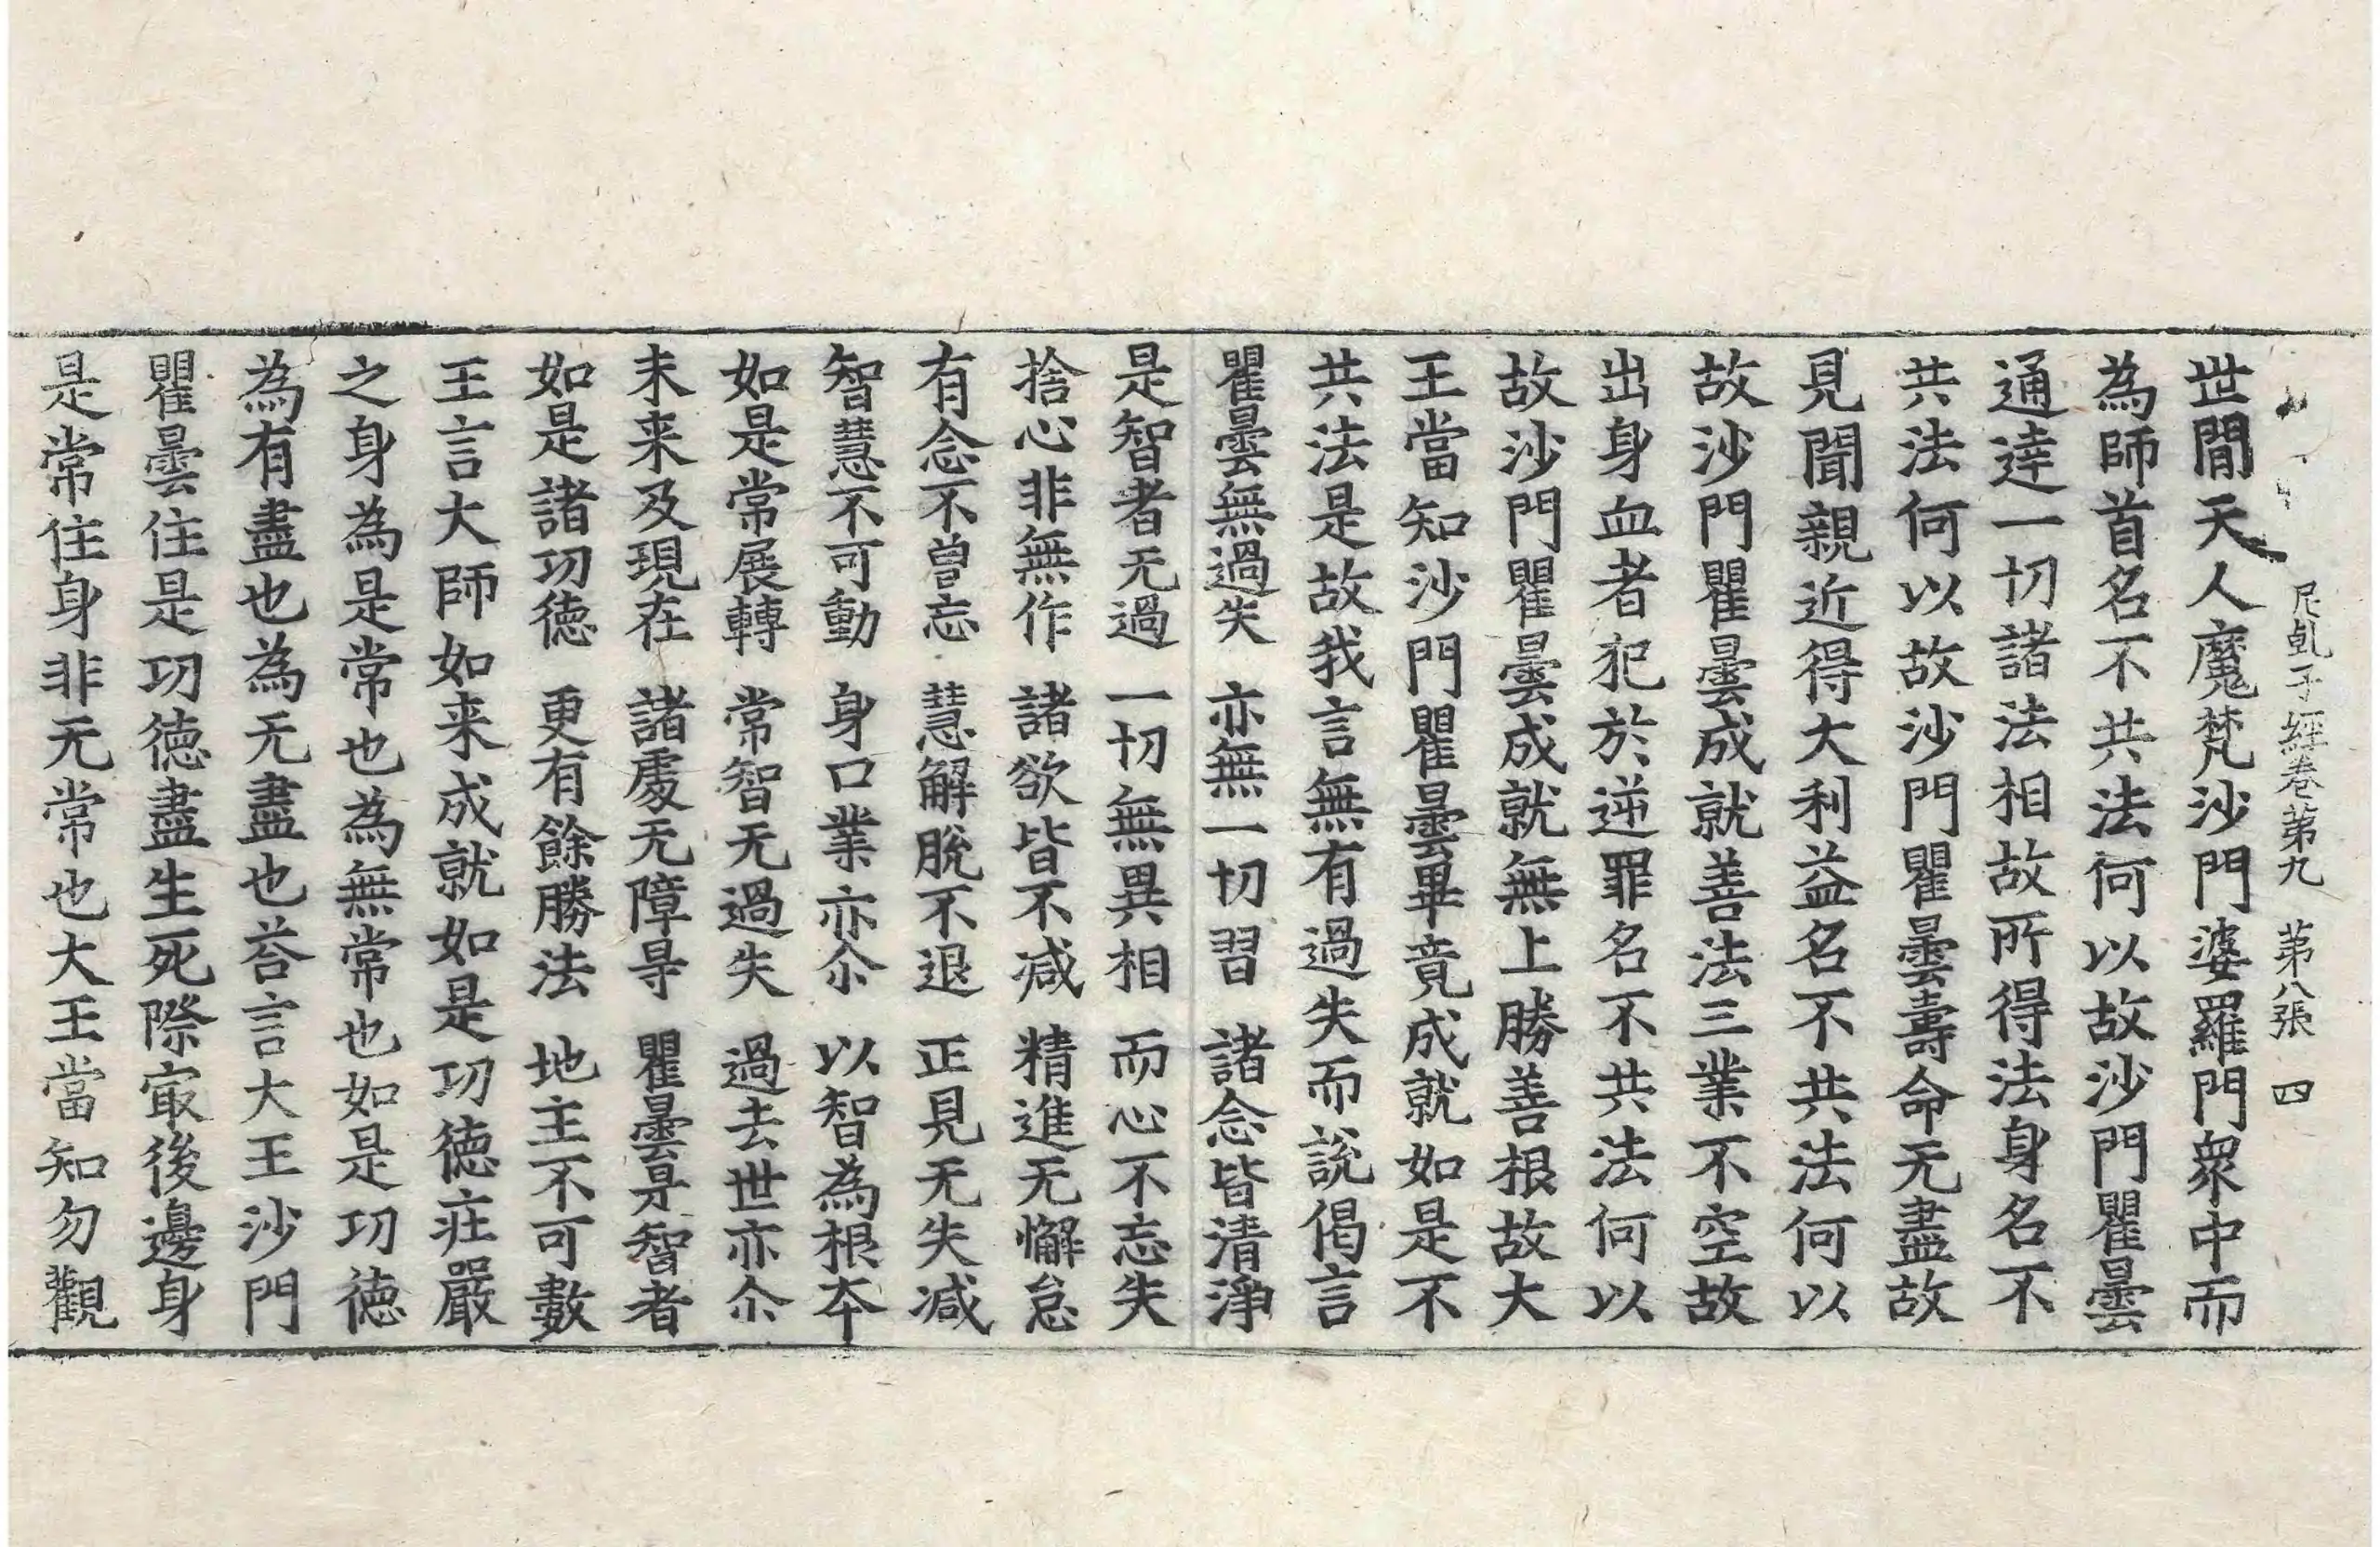 尼乹子經卷第九　第八張　四
世閒天人魔梵沙門婆羅門衆中而
為師首名不共法何以故沙門瞿曇
通達一切諸法相故所得法身名不
共法何以故沙門瞿曇壽命无盡故
見聞親近得大利益名不共法何以
故沙門瞿曇成就善法三業不空故
出身血者犯於逆罪名不共法何以
故沙門瞿曇成就無上勝善根故大
王當知沙門瞿曇畢竟成就如是不
共法是故我言無有過失而說偈言
瞿曇無過失　亦無一切習　諸念皆清淨
是智者无過　一切無異相　而心不忘失
捨心非無作　諸欲皆不減　精進无懈怠
有念不曾忘　慧解脫不退　正見无失减
智慧不可動　身口業亦尒　以智為根夲
如是常展轉　常智无過失　過去世亦尒
未来及現在　諸處无障㝵　瞿曇是智者
如是諸功徳　更有餘勝法　地主不可數
王言大師如来成就如是功徳莊嚴
之身為是常也為無常也如是功徳
為有盡也為无盡也荅言大王沙門
瞿曇住是功徳盡生死際㝡後邊身
是常住身非无常也大王當知勿觀